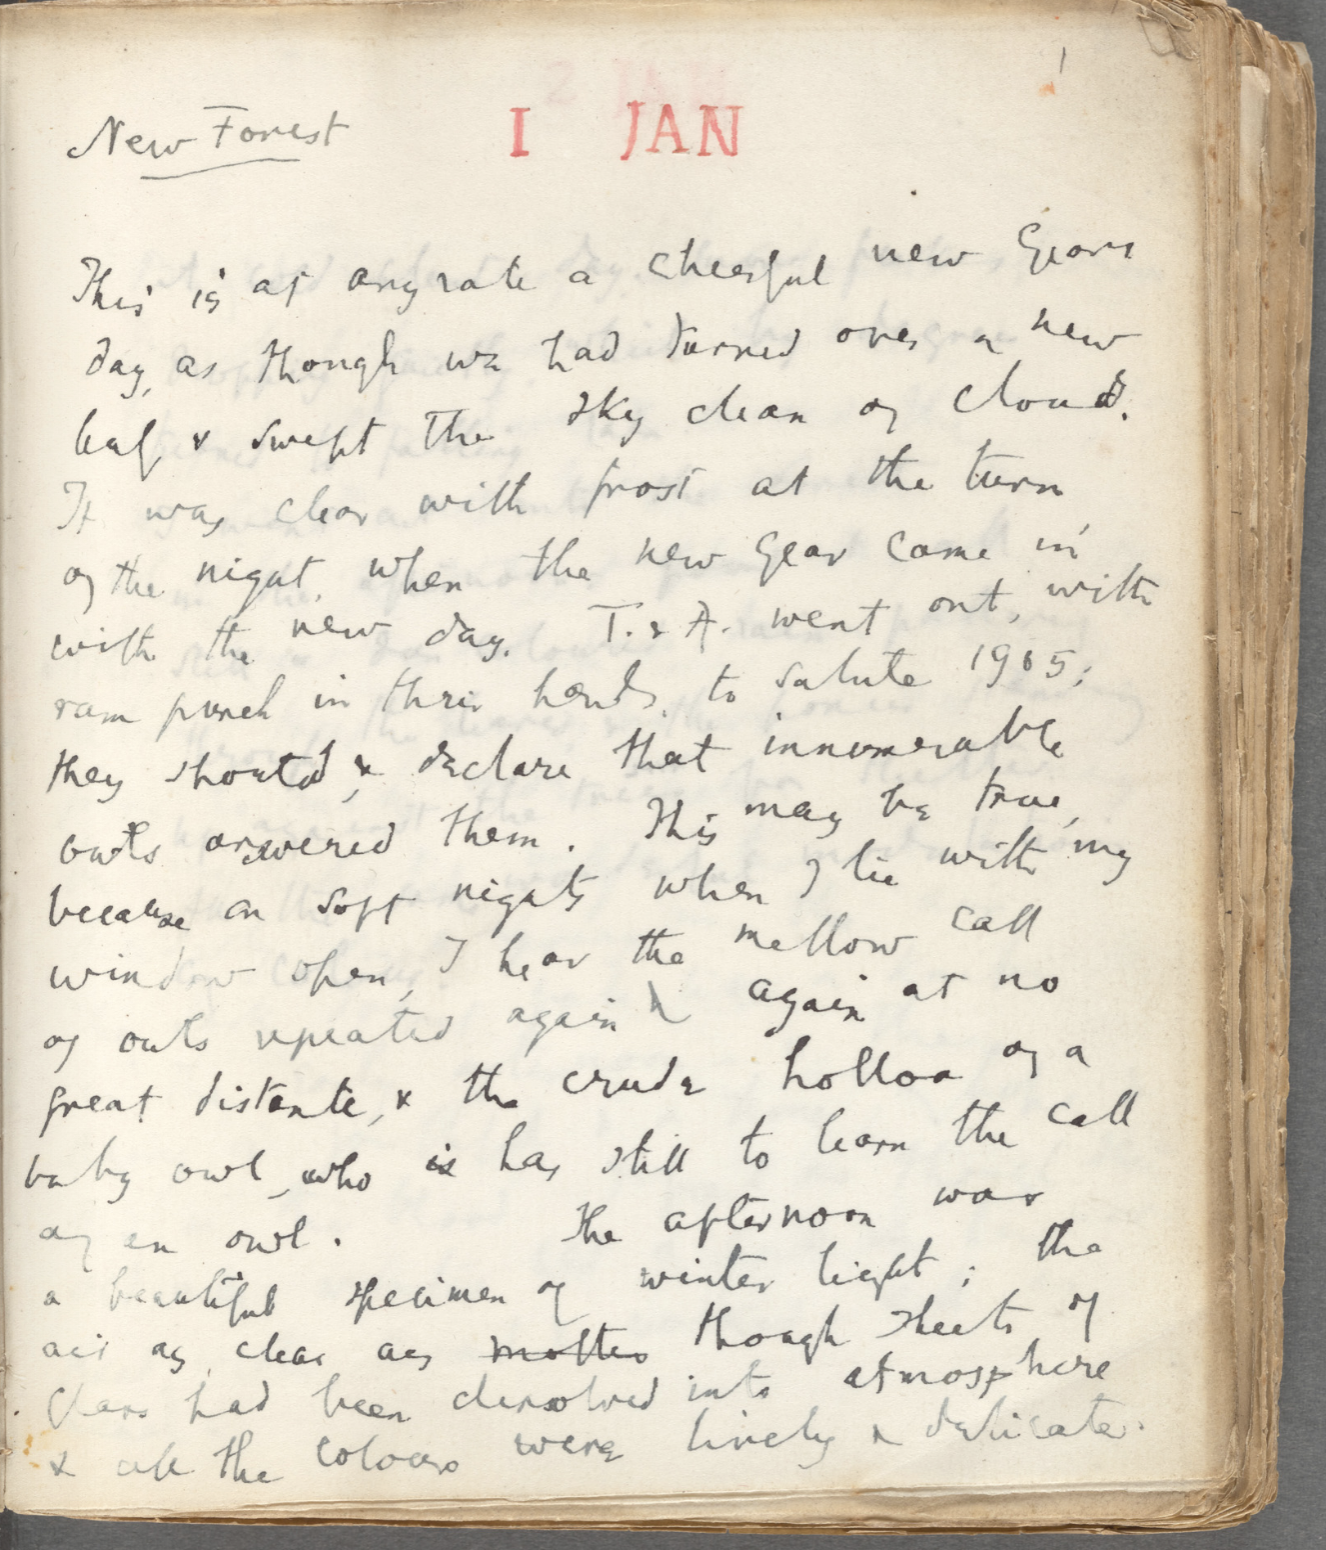 1
New Forest
1 JAN
This is at any rate a cheerful new years
day, as though we had turned over a new
leaf, & swept the sky clean of cloud.
It was clear with frost at the turn
of the night, when the new year came in
with the new day. T. & A. went out, with
rum punch in their hands, to salute 1905;
they shouted, & declare that innumerable
owls answered them. This may be true,
because on soft nights when I lie with my
window open, I hear the mellow call
of owls repeated again & again at no
great distance, & the crude holloa of a
baby owl, who is has still to learn the call
of an owl. The afternoon was
a beautiful specimen of winter light; the
air as clear as though sheets of
glass had been dissolved into atmosphere
& all the colours were lively & delicate.